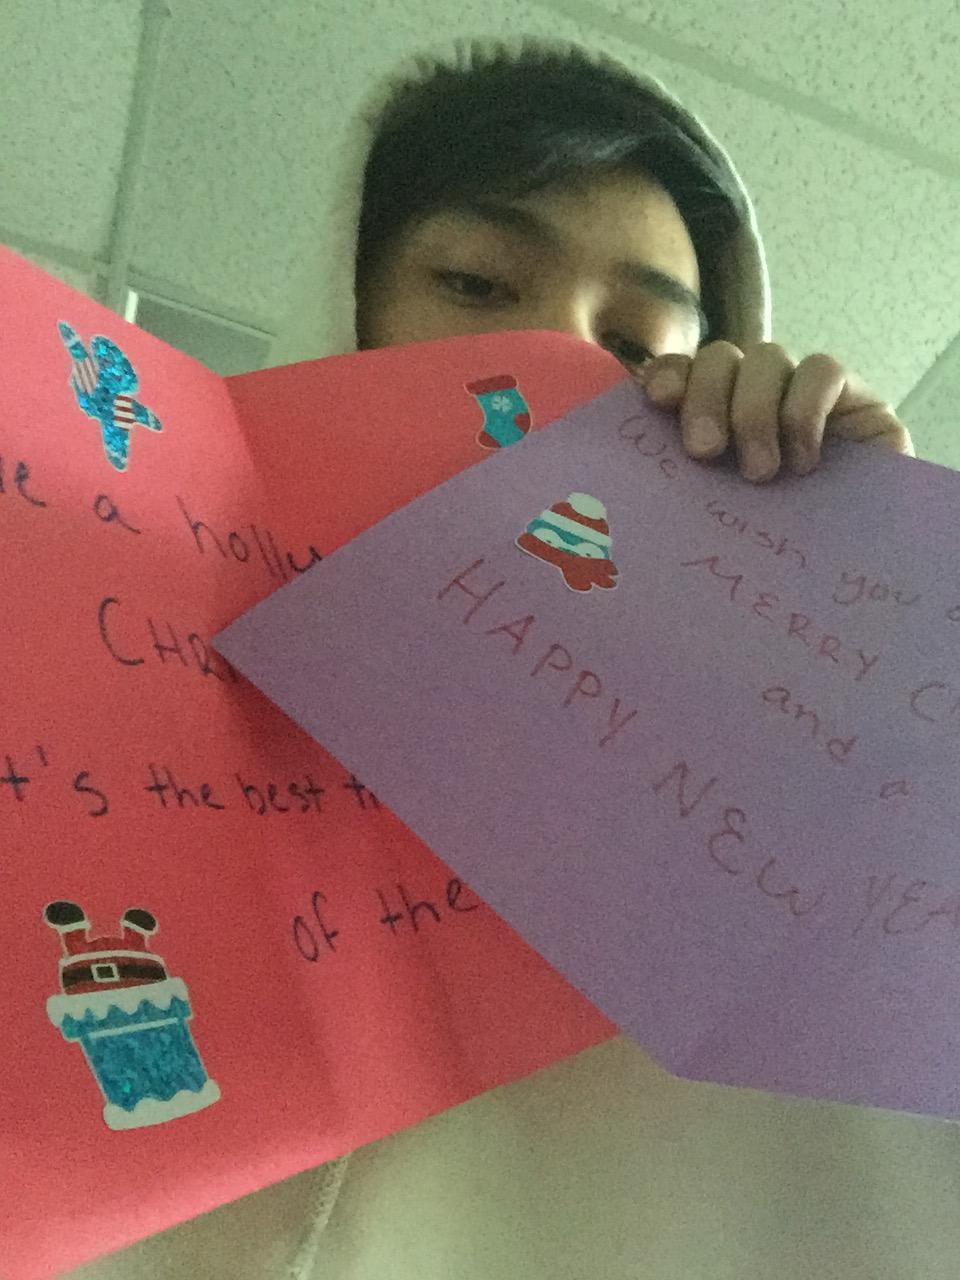 a holly
CHR
t's the best t
of the
We wish you a
MERRY C
and a
HAPPY NEW YEA